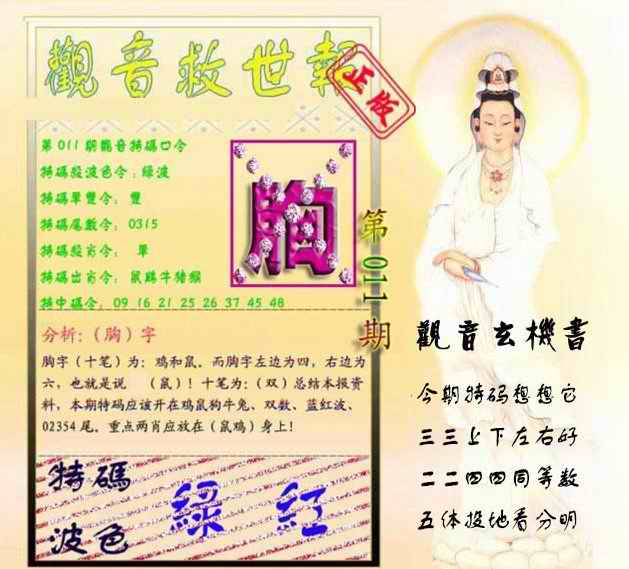 觀音救世報
正版
第011期觀音特碼口令
特碼段波色令:綠波
特碼單雙令: 雙
特碼尾數令: 0315
特碼段肖令: 單
特碼出肖令: 鼠鷄牛猪猴
特中碼令: 09 16 21 25 26 37 45 48
胸
第011期
分析:(胸)字
胸字(十笔)为:鸡和鼠。而胸字左边为四,右边为
六,也就是说 (鼠)!十笔为:(双)总结本报资
料,本期特码应该开在鸡鼠狗牛兔、双数、蓝红波、
02354 尾。重点两肖应放在(鼠鸡)身上!
特碼
波色
綠 紅
觀音玄機書
今期特码想想它
三三上下左右好
二二四四同等数
五体投地看分明